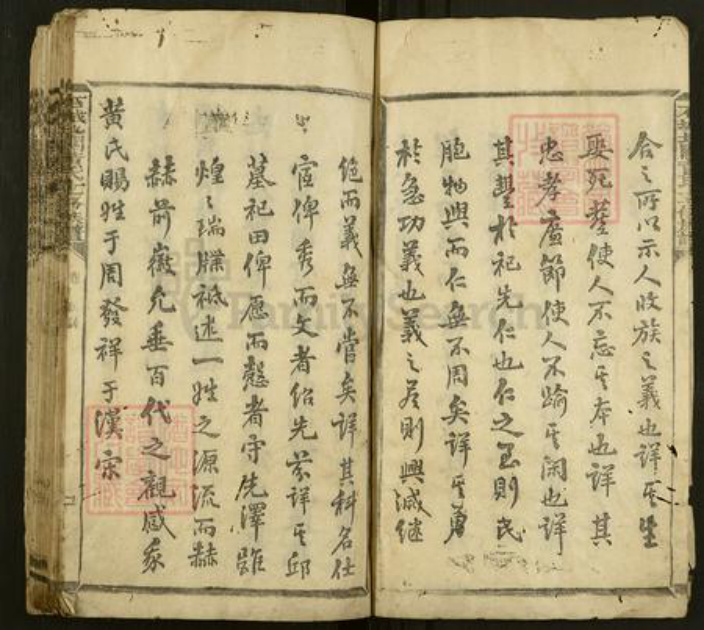 合之所以示人收族之義也詳其生
娶死葬使人不忘其本也詳其
忠孝廉節使人不踰其閑也詳
其豐於祀先仁也仁之至則民
胞物與而仁無不周矣詳其勇
於急功義也義之為則興滅繼
絕而義無不當矣詳其科名仕
宦俾秀而文者紹先芬詳其邱
墓祀田俾愿而慤者守先澤雖
煌之瑞牒祗述一姓之源流而赫
赫前徽允垂百代之觀感家
黃氏賜姓于周發祥于漢宋
FamilySearch